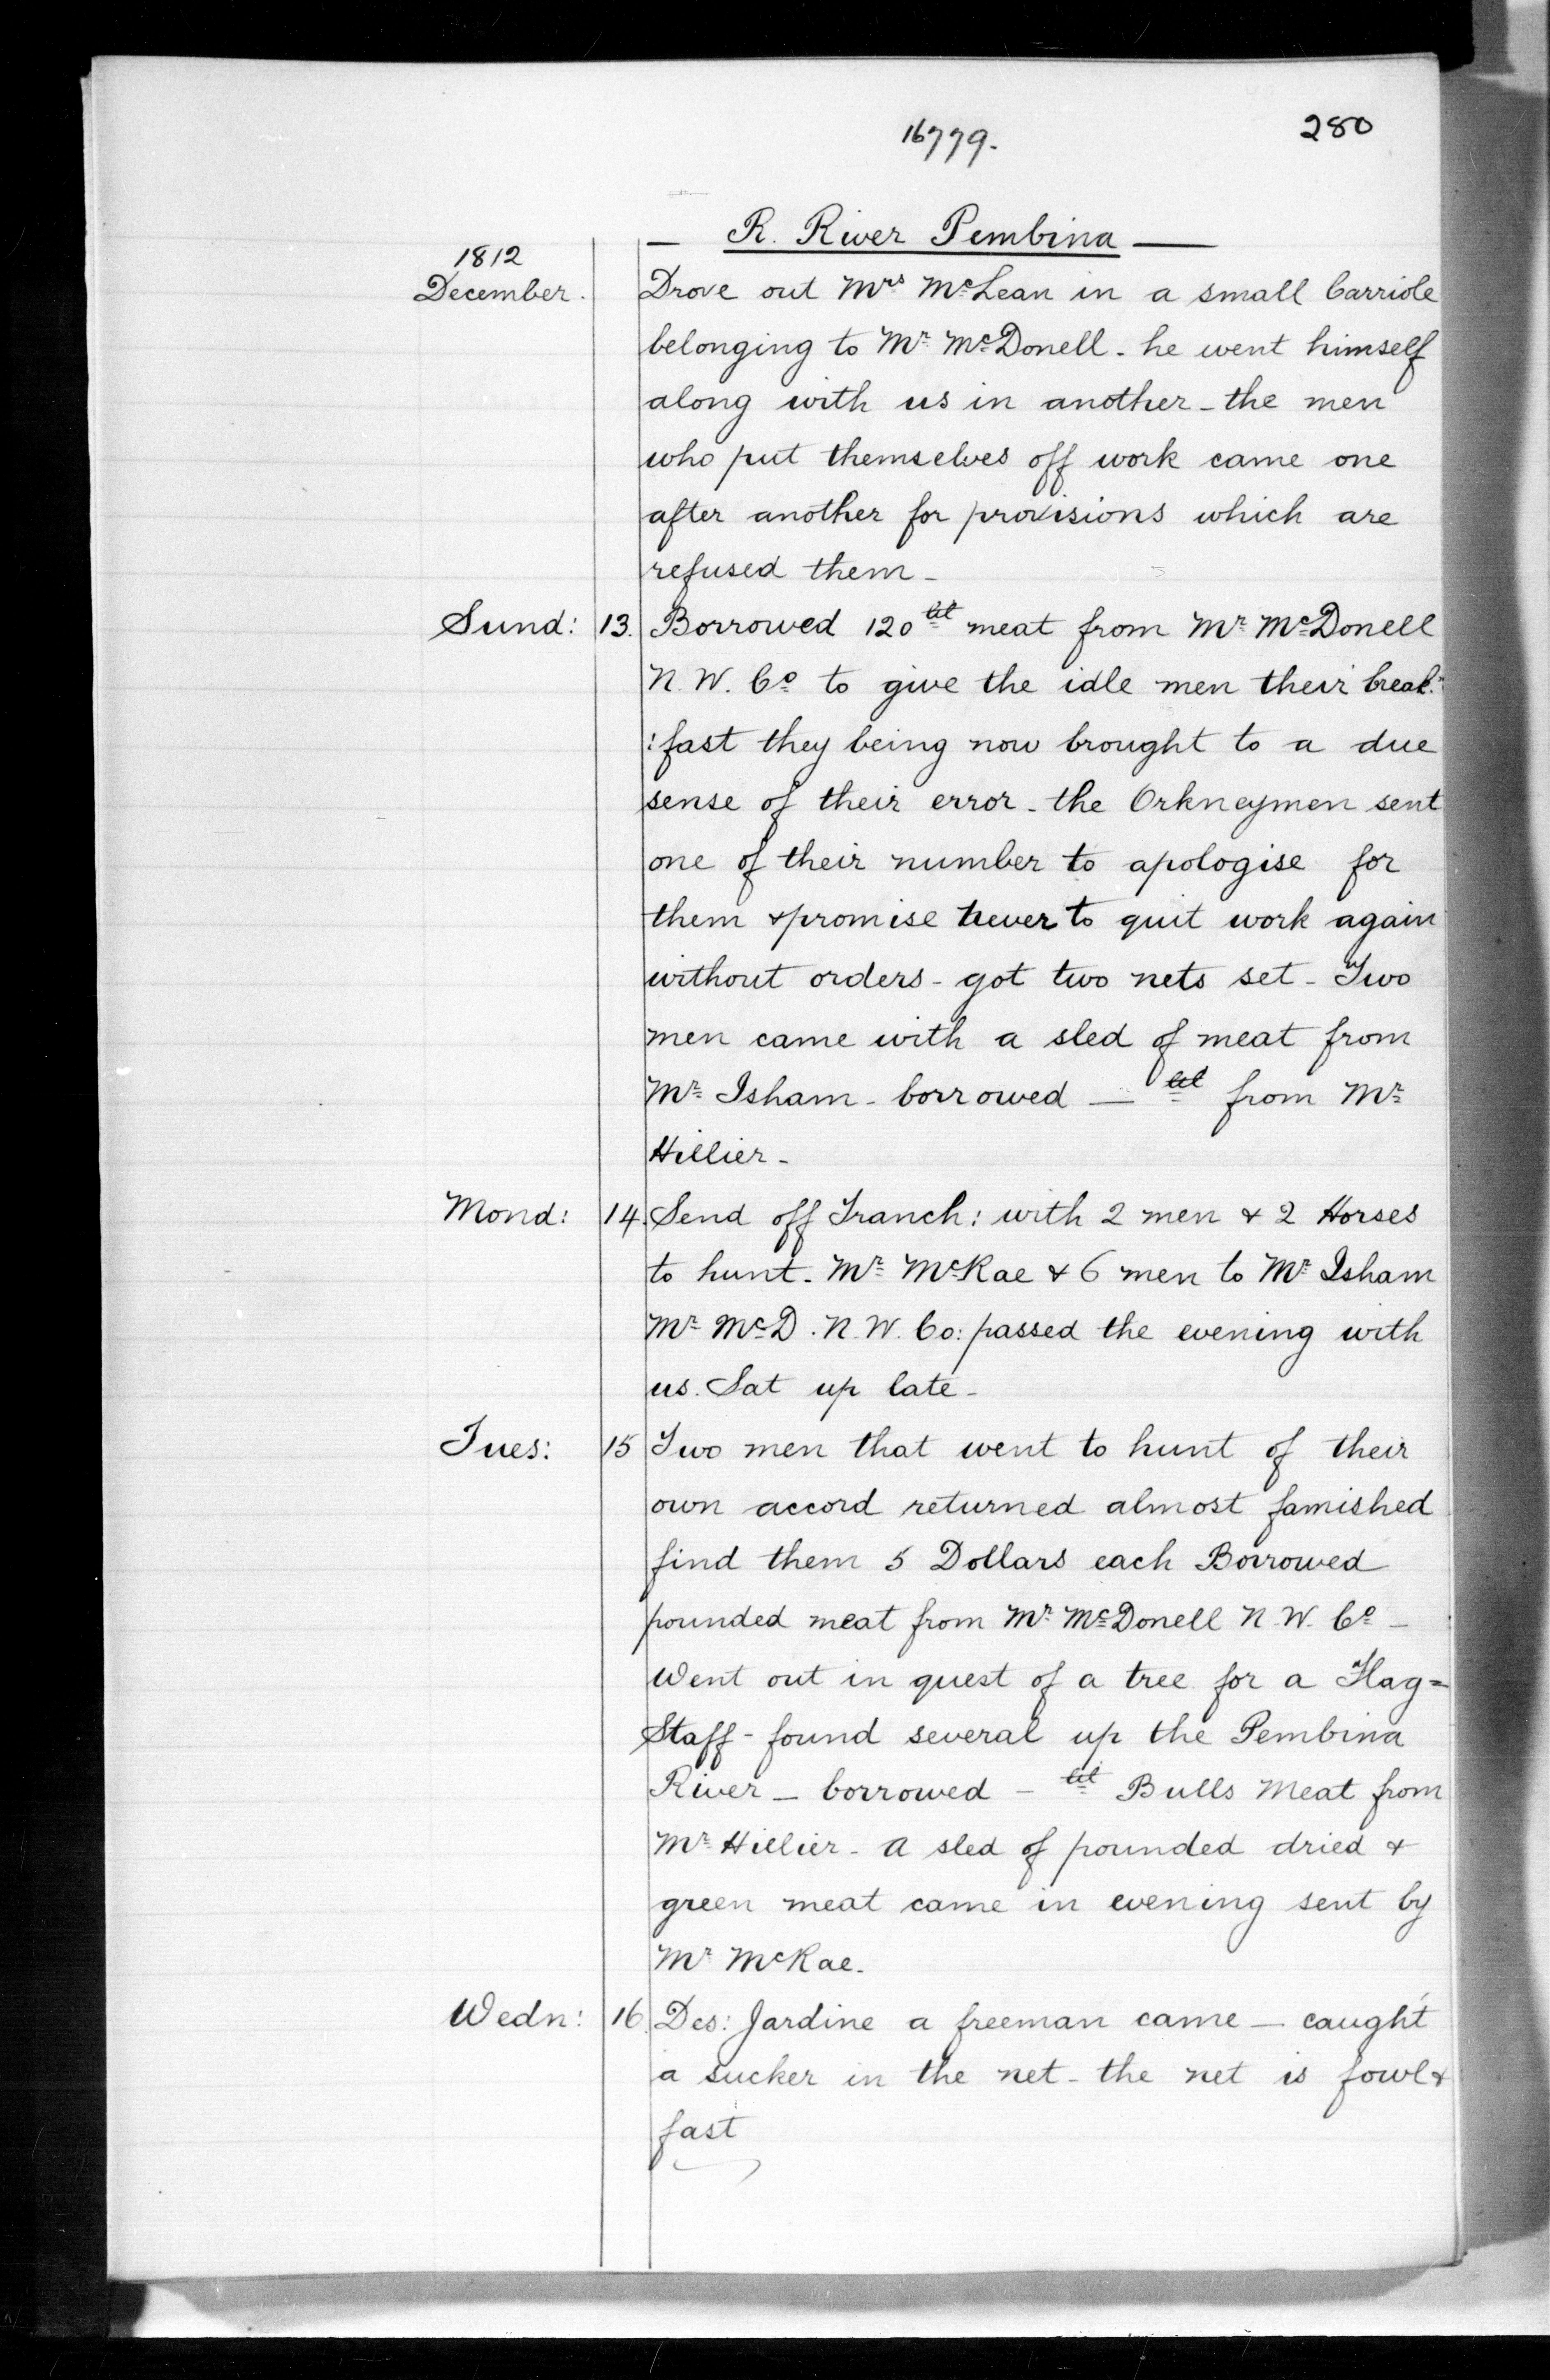 16779.
280
— R. River Pembina —
1812
December.
Drove out Mrs McLean in a small Carriole
belonging to Mr McDonell - he went himself
along with us in another - the men
who put themselves off work came one
after another for provisions which are
refused them -
Sund: 13. Borrowed 120 lb meat from Mr McDonell
N. W. Co to give the idle men their break:
:fast they being now brought to a due
sense of their error - the Orkneymen sent
one of their number to apologise for
them & promise never to quit work again
without orders - got two nets set - Two
men came with a sled of meat from
Mr Isham - borrowed — lb from Mr
Hillier -
Mond: 14. Send off Franch: with 2 men & 2 Horses
to hunt - Mr McRae & 6 men to Mr Isham
Mr McD. N. W. Co: passed the evening with
us. Sat up late -
Tues: 15 Two men that went to hunt of their
own accord returned almost famished
find them 5 Dollars each Borrowed
pounded meat from Mr McDonell N. W. Co -
Went out in quest of a tree for a Flag=
Staff - found several up the Pembina
River - borrowed - lb Bulls Meat from
Mr Hillier - a sled of pounded dried &
green meat came in evening sent by
Mr McRae.
Wedn: 16. Des: Jardine a freeman came — caught
a sucker in the net - the net is fowl &
fast